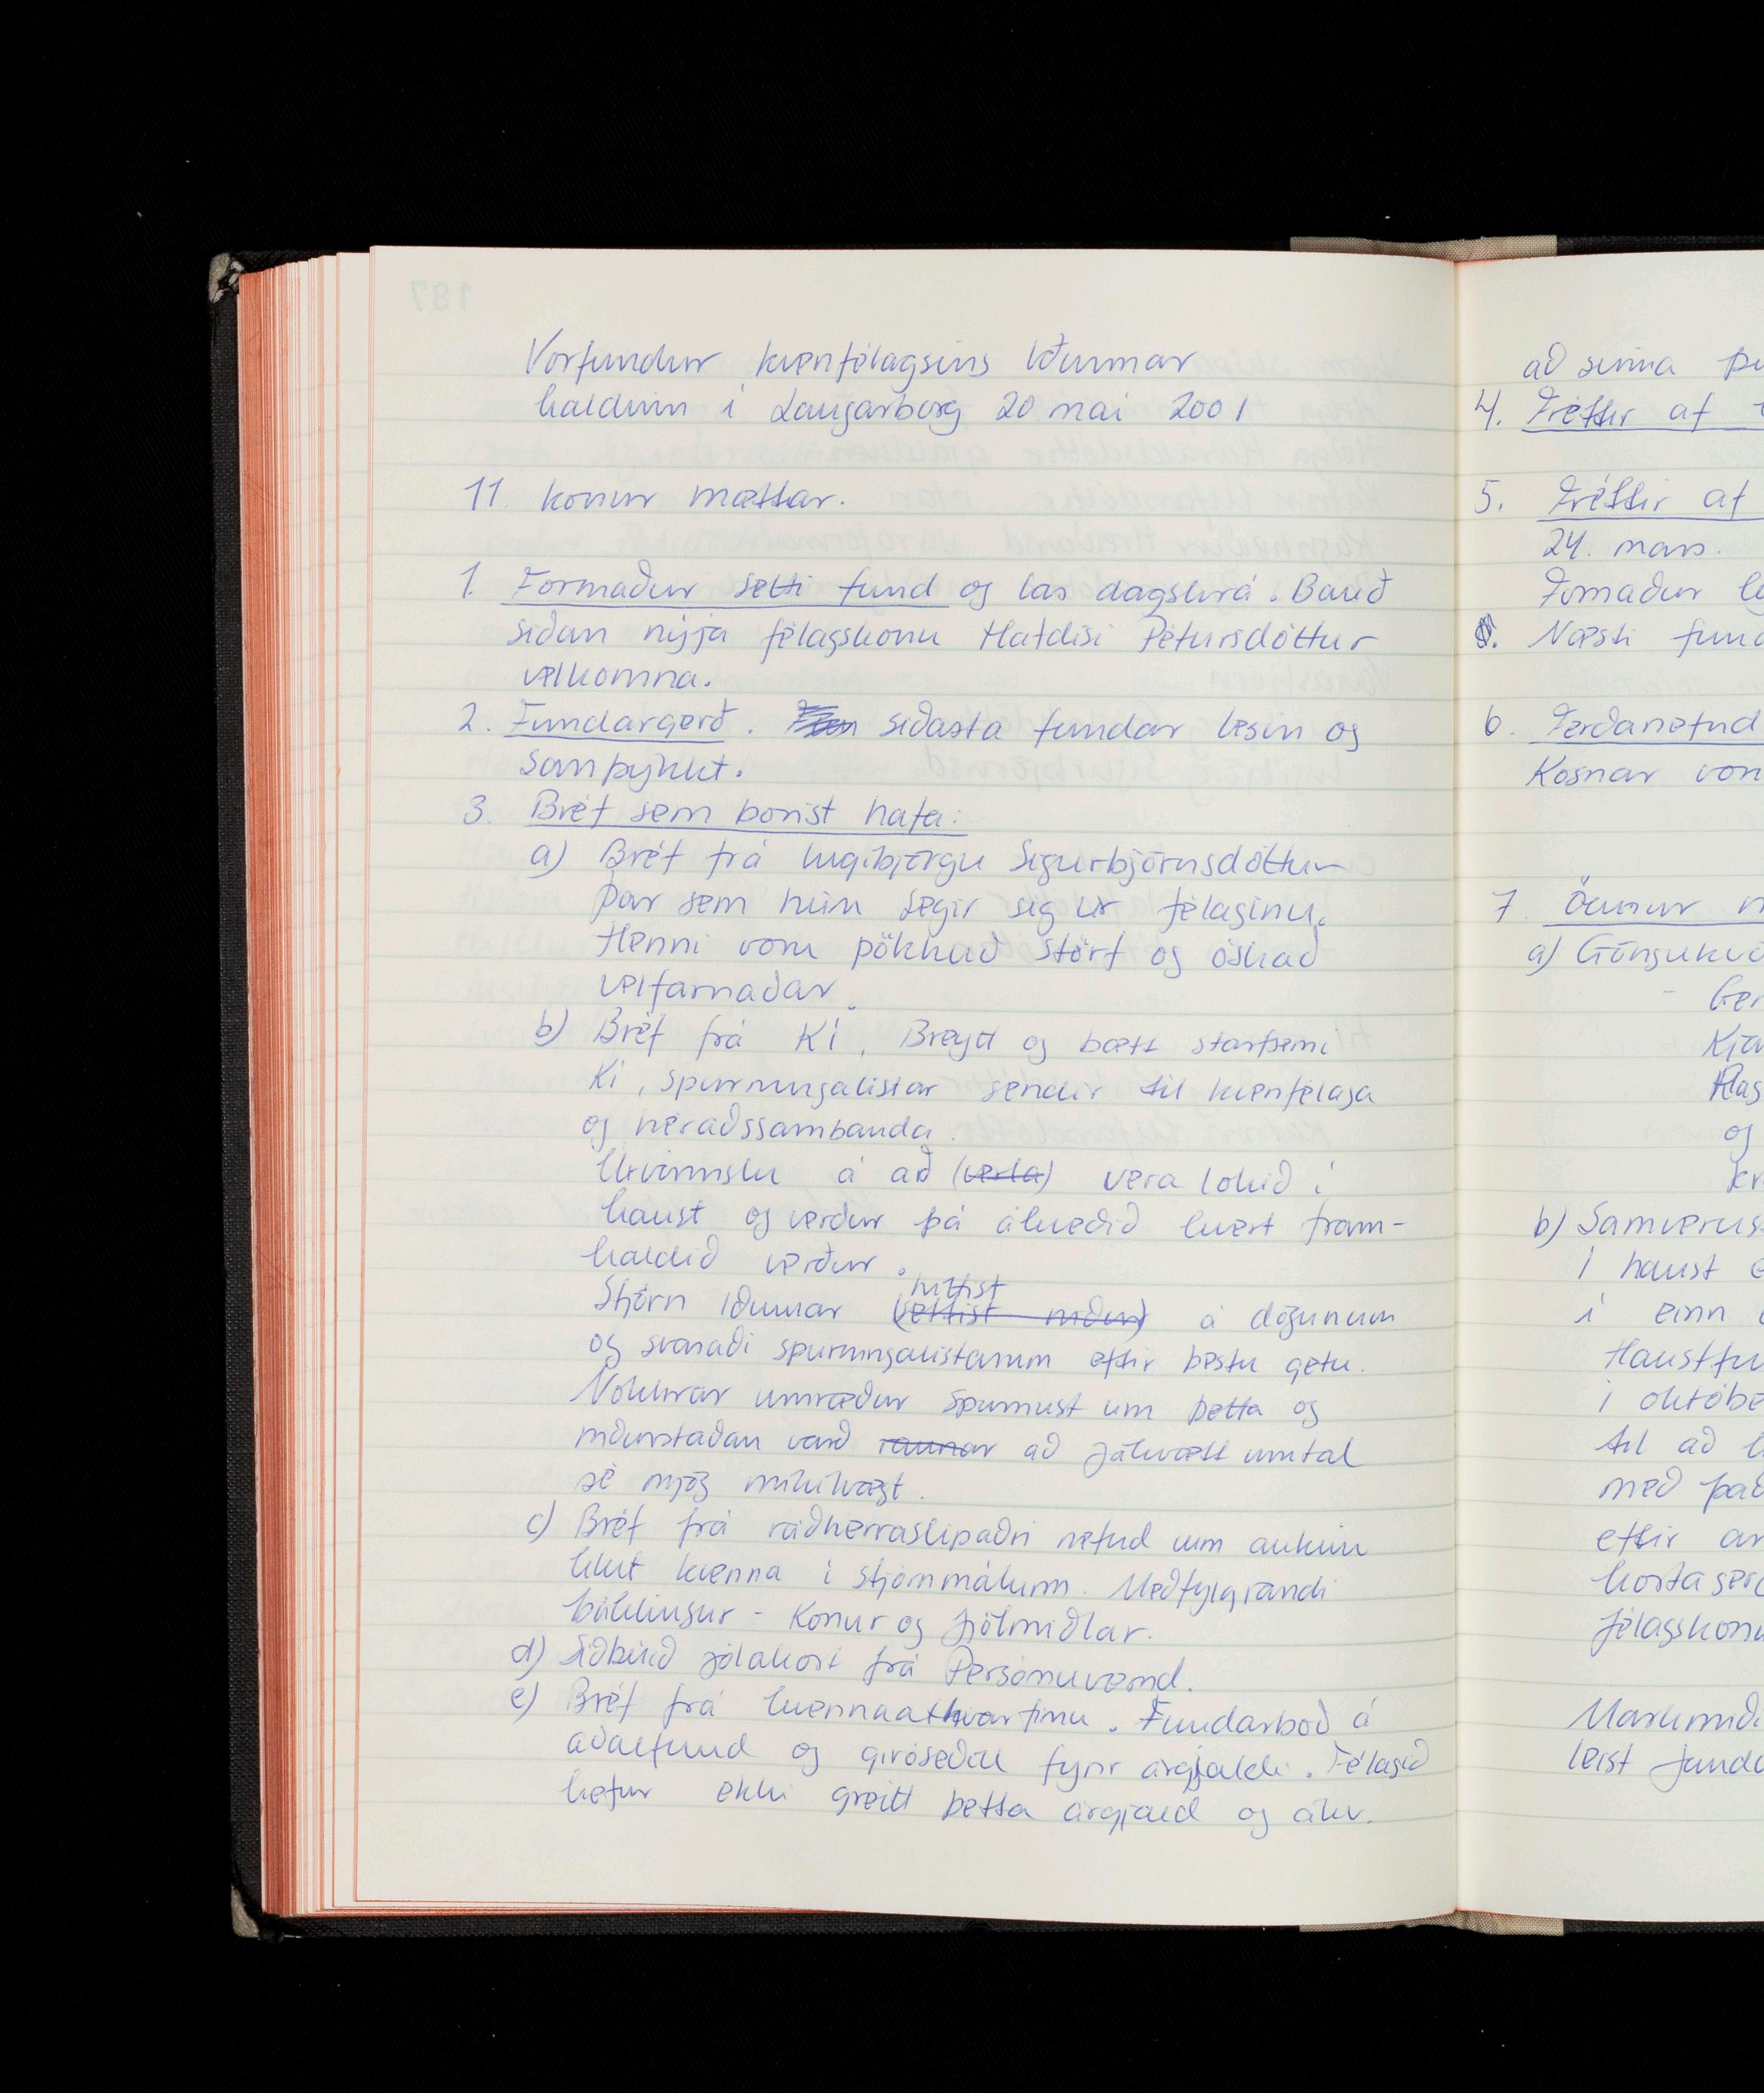 Vorfundur kvenfélagsins Iðunnar
haldinn í Laugarborg 20 mai 2001
11. konur mættar.
1. Formaður setti fund og las dagskrá. Bauð
síðan nýja félagskonu Hafdísi Pétursdóttur
velkomna.
2. Fundargerð. síðasta fundar lesin og
Samþykkt.
3. Bréf sem borist hafa:
a) Bréf frá Ingibjörgu Sigurbjörnsdóttur
þar sem hún segir sig úr félaginu.
Henni voru þökkuð störf og óskað
velfarnaðar.
b) Bréf frá KÍ. Breytt og bætt starfsemi
KÍ, spurningalistar sendir til kvenfélaga
og héraðssambanda.
Úrvinnslu á að (verða) vera lokið í
haust og verður þá ákveðið hvert fram-
haldið verður.
hittist
Stjórn Iðunnar (settist niður) á dögunum
og svaraði spurningalistanum eftir bestu getu.
Nokkrar umræður spunnust um þetta og
niðurstaðan varð raunar að jákvætt umtal
sé mjög mikilvægt.
c) Bréf frá ráðherraskipaðri nefnd um aukinn
hlut kvenna í stjórnmálum. Meðfylgjandi
bæklingur - Konur og fjölmiðlar.
d) Síðbúið jólakort frá Persónuvernd.
e) Bréf frá kvennaathvarfinu. Fundarboð á
aðalfund og gíróseðill fyrir árgjaldi. Félagið
hefur ekki greitt þetta árgjald og ákv.
að sinna
4. Fréttir af
5. Fréttir af
24. mars.
Fomaður
Næsti fund
6. Ferðanefnd
Kosnar
7. Önnur
a)
og
b)
í haust
í einn
Haustfu
í októbe
til að
með það
eftir
félagskonu
leist